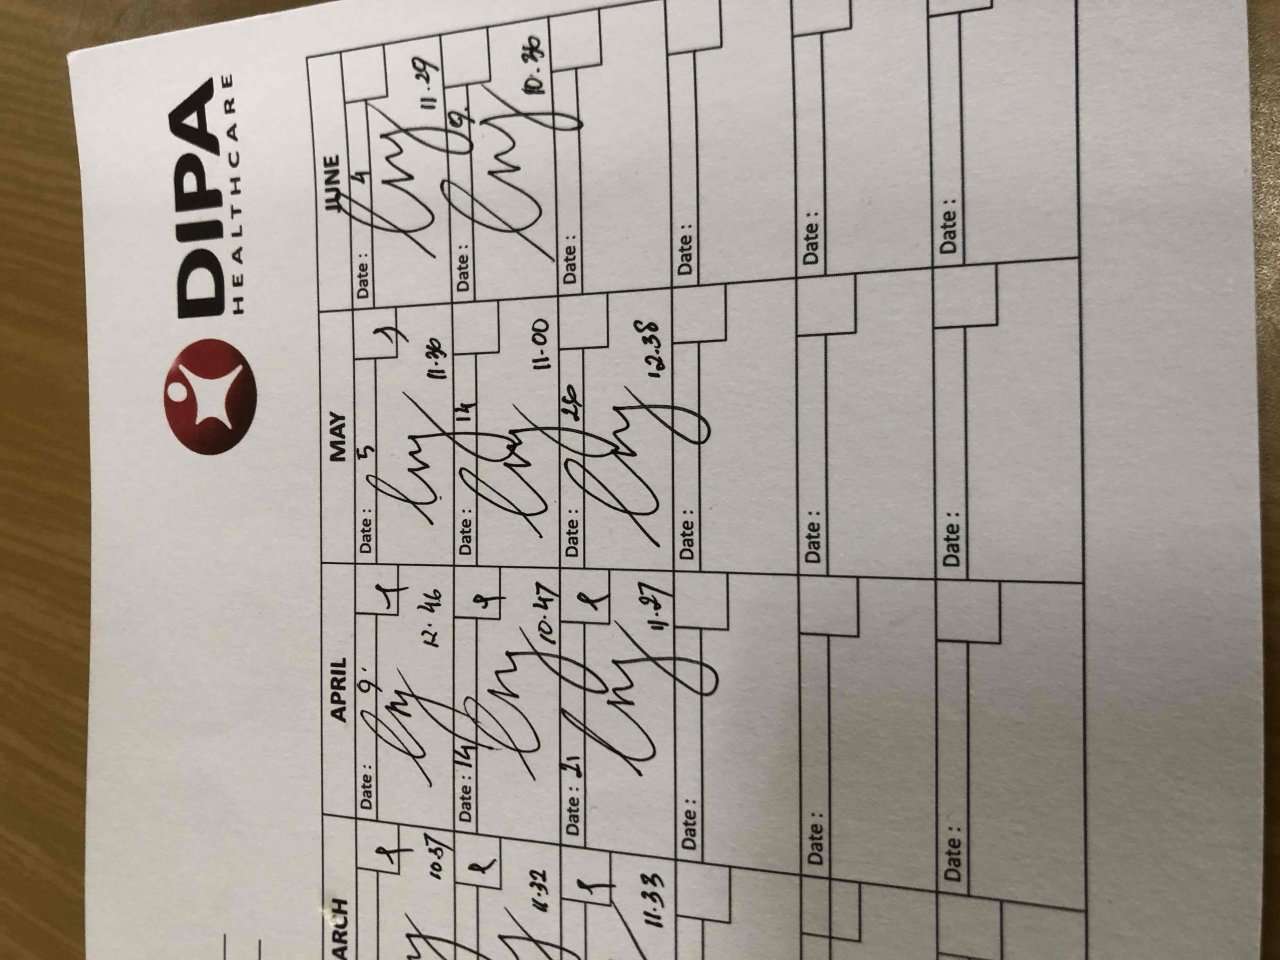 DIPA
HEALTHCARE
ARCH APRIL MAY JUNE
Date : 9 Date : 5 Date : 4
10.37 12.46 11.30 11.29
Date : 14 Date : 14 Date : 9
11.32 10.47 11.00 10.30
Date : 21 Date : Date :
11.33 11.27 12.38
Date : Date : Date :
Date : Date : Date :
Date : Date : Date :